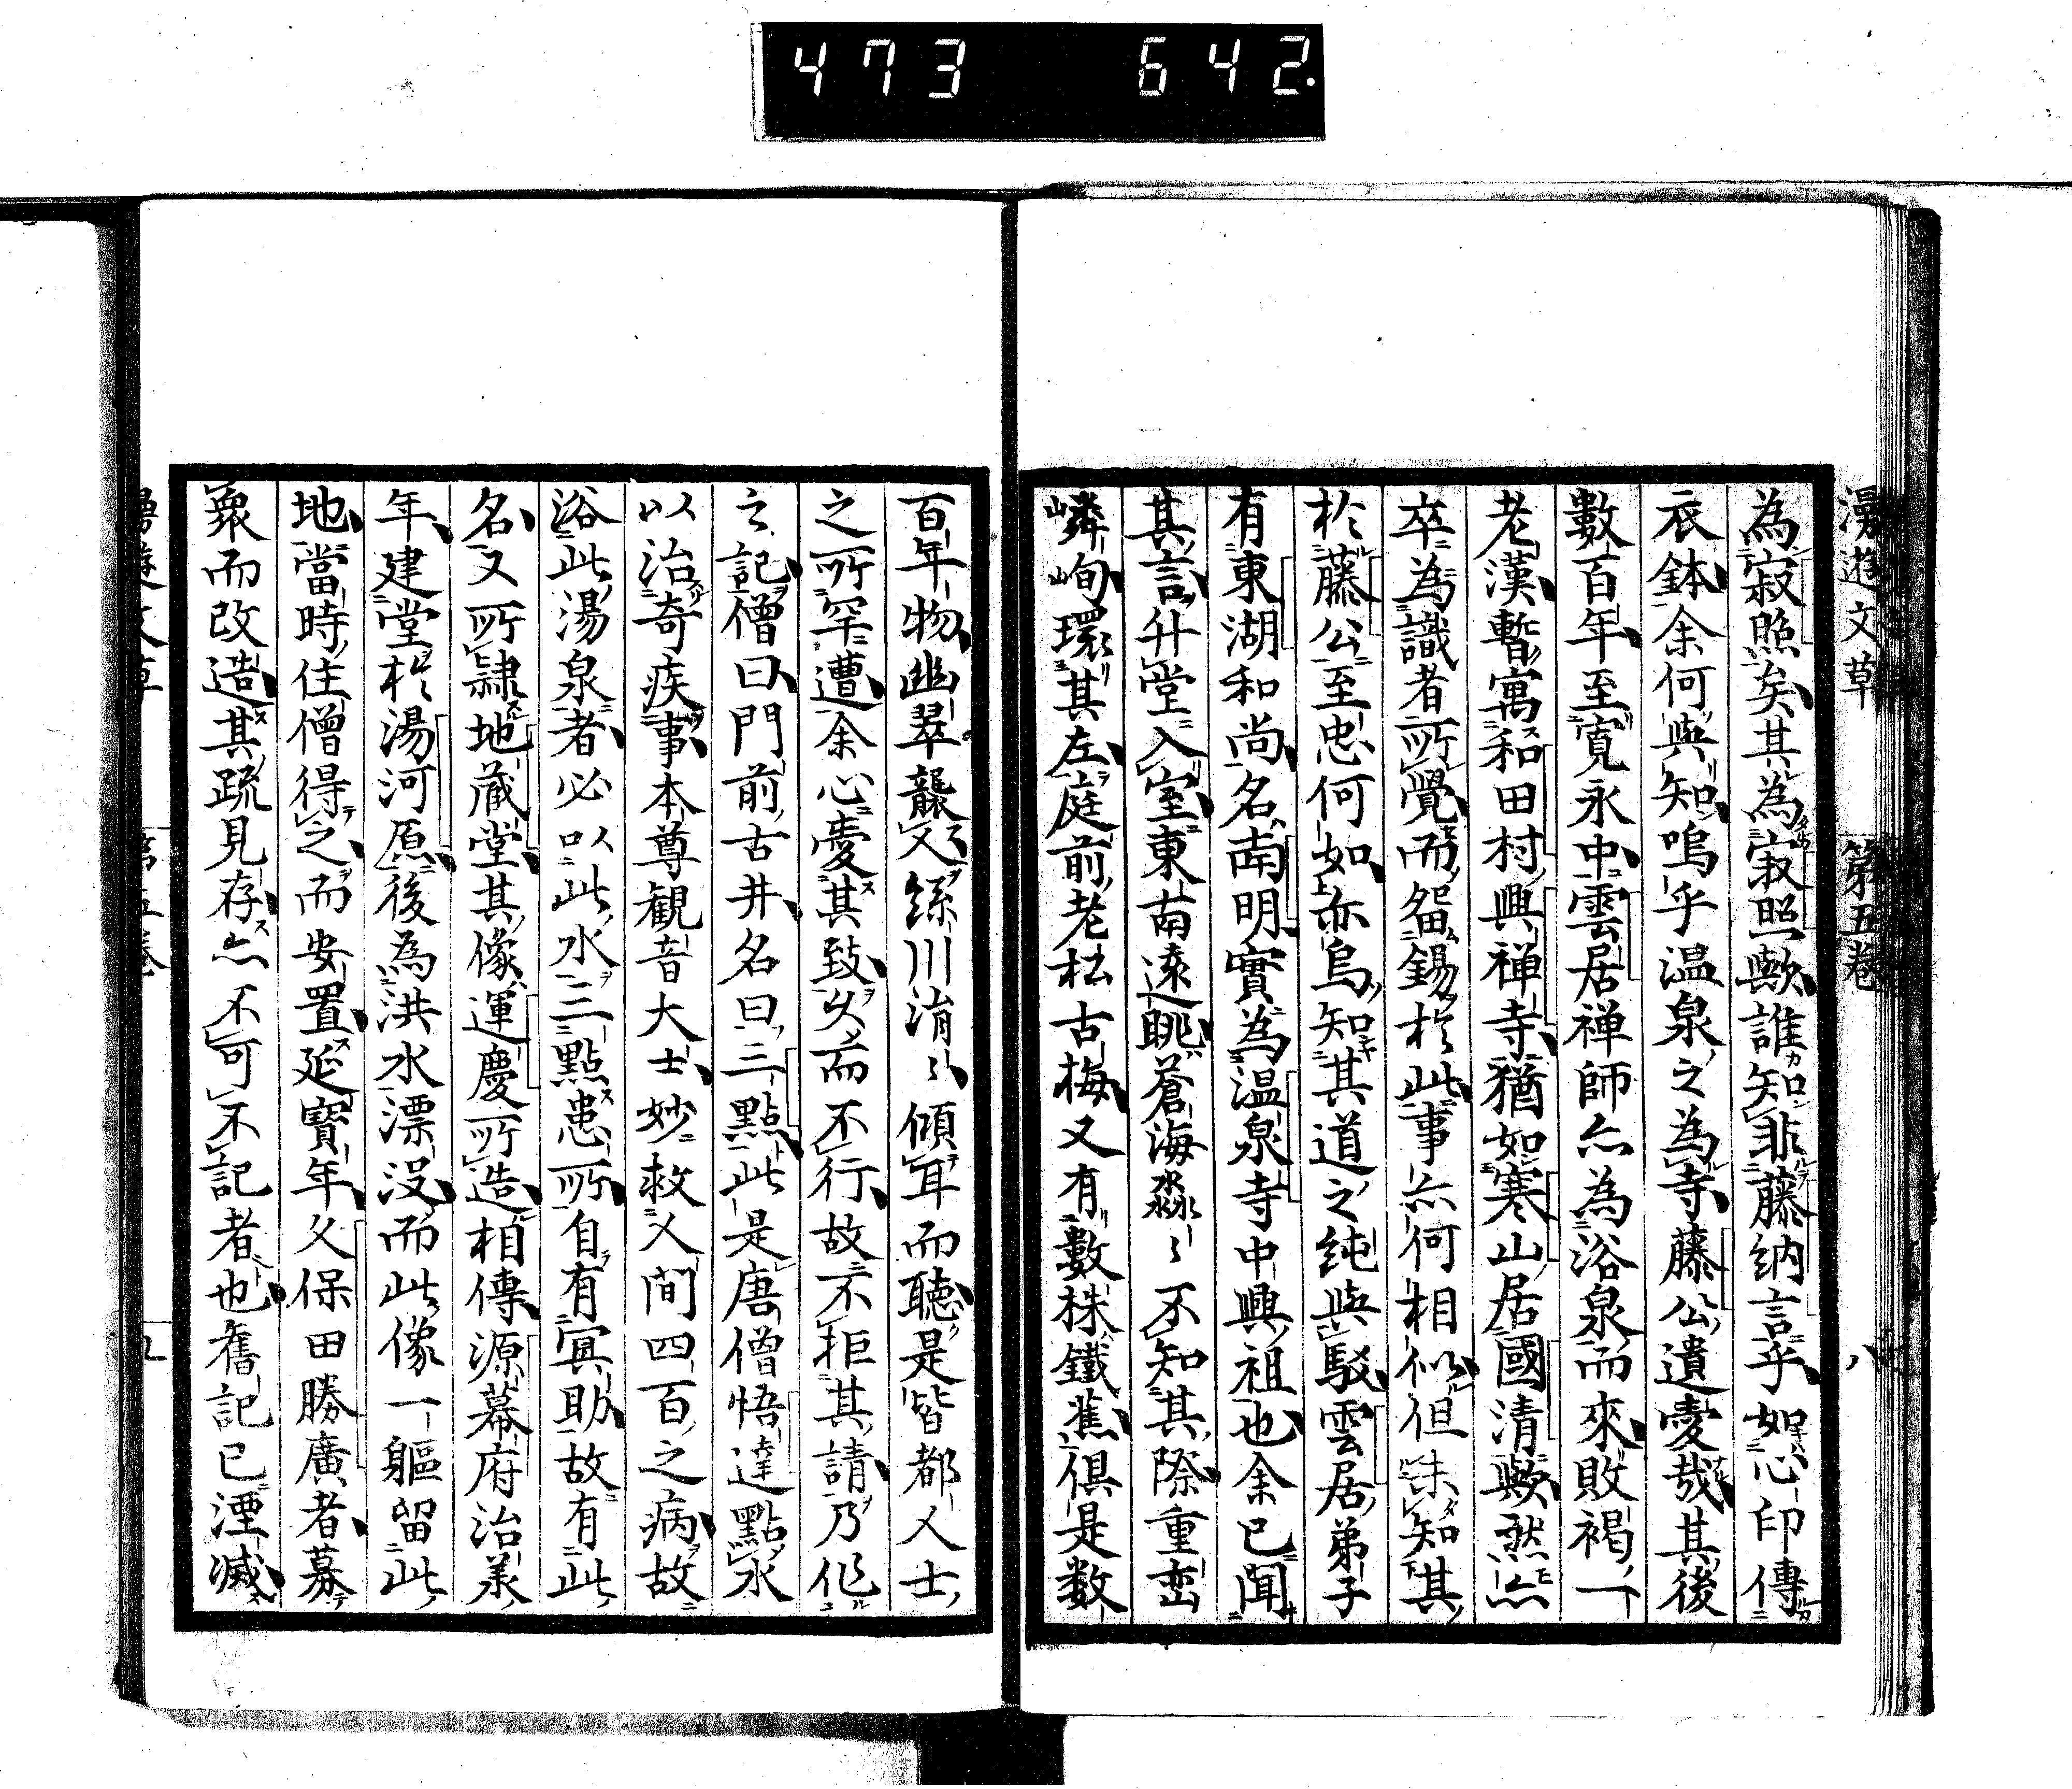 473 642.
漫遊文草 第五卷 八
為寂照矣其為寂照歟誰知非藤納言乎如心印傳
衣鉢余何與知嗚乎温泉之為寺藤公遺愛哉其後
數百年至寛永中雲居禅師亦為浴泉而來敗褐一
老漢暫寓和田村興禅寺猶如寒山居國清歟然亦
卒為識者所覺而留錫於此事亦何相似但未知其
於藤公至忠何如亦烏知其道之純與駁雲居弟子
有東湖和尚名南明實為温泉寺中興祖也余已聞
其言升堂入室東南遠眺蒼海淼〻不知其際重巒
嶙峋環其左庭前老松古梅又有數株鐵蕉俱是数
百年物幽翠襲人絲川涓〻傾耳而聴是皆都人士
之所罕遭余心愛其致久而不行故不拒其請乃作
之記僧曰門前古井名曰三點此是唐僧悟達點水
以治奇疾事本尊観音大士妙救人間四百之病故
浴此湯泉者必以此水三點患所自有冥助故有此
名又所隷地藏堂其像運慶所造相傳源幕府治義
年建堂於湯河原後為洪水漂没而此像一軀留此
地當時住僧得之而安置延寳年久保田勝廣者募
衆而改造其疏見存亦不可不記者也舊記已湮滅